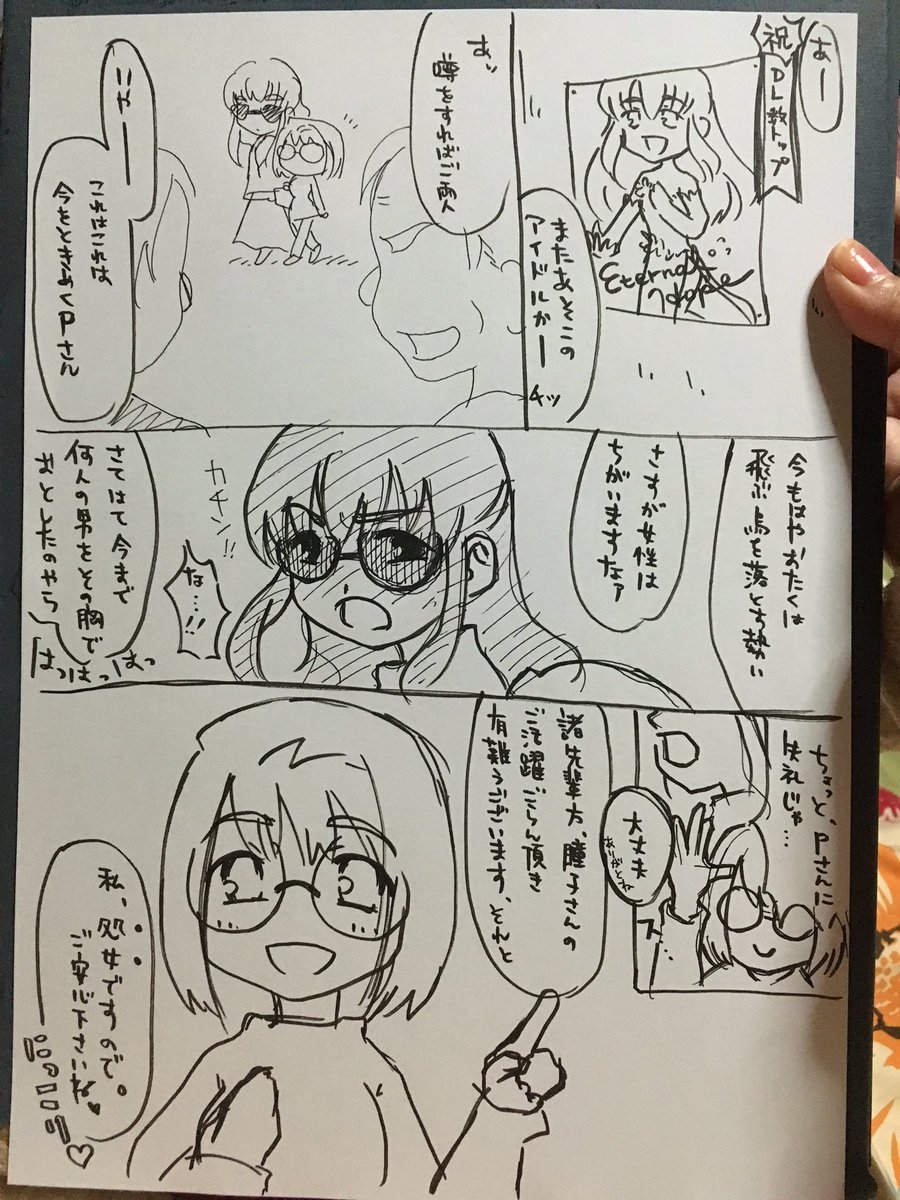 あー
祝
DL数トップ
Eternal
Hope
またあそこの
アイドルかー
チッ
あッ
噂をすればご両人
いやー
これはこれは
今をときめくPさん
今もはやおたくは
飛ぶ鳥を落とす勢い
さすが女性は
ちがいますなァ
カチン!!
な…!!
さてはて今まで
何人の男をその胸で
おとしたのやら
はっはっはっ
ちょっと、Pさんに
失礼じゃ…
大丈夫
ありがとうね
ス…
諸先輩方、瞳子さんの
ご活躍ごらん頂き
有難うございます、それと
私、処女ですので。
ご安心下さいね♥
にっこり♡